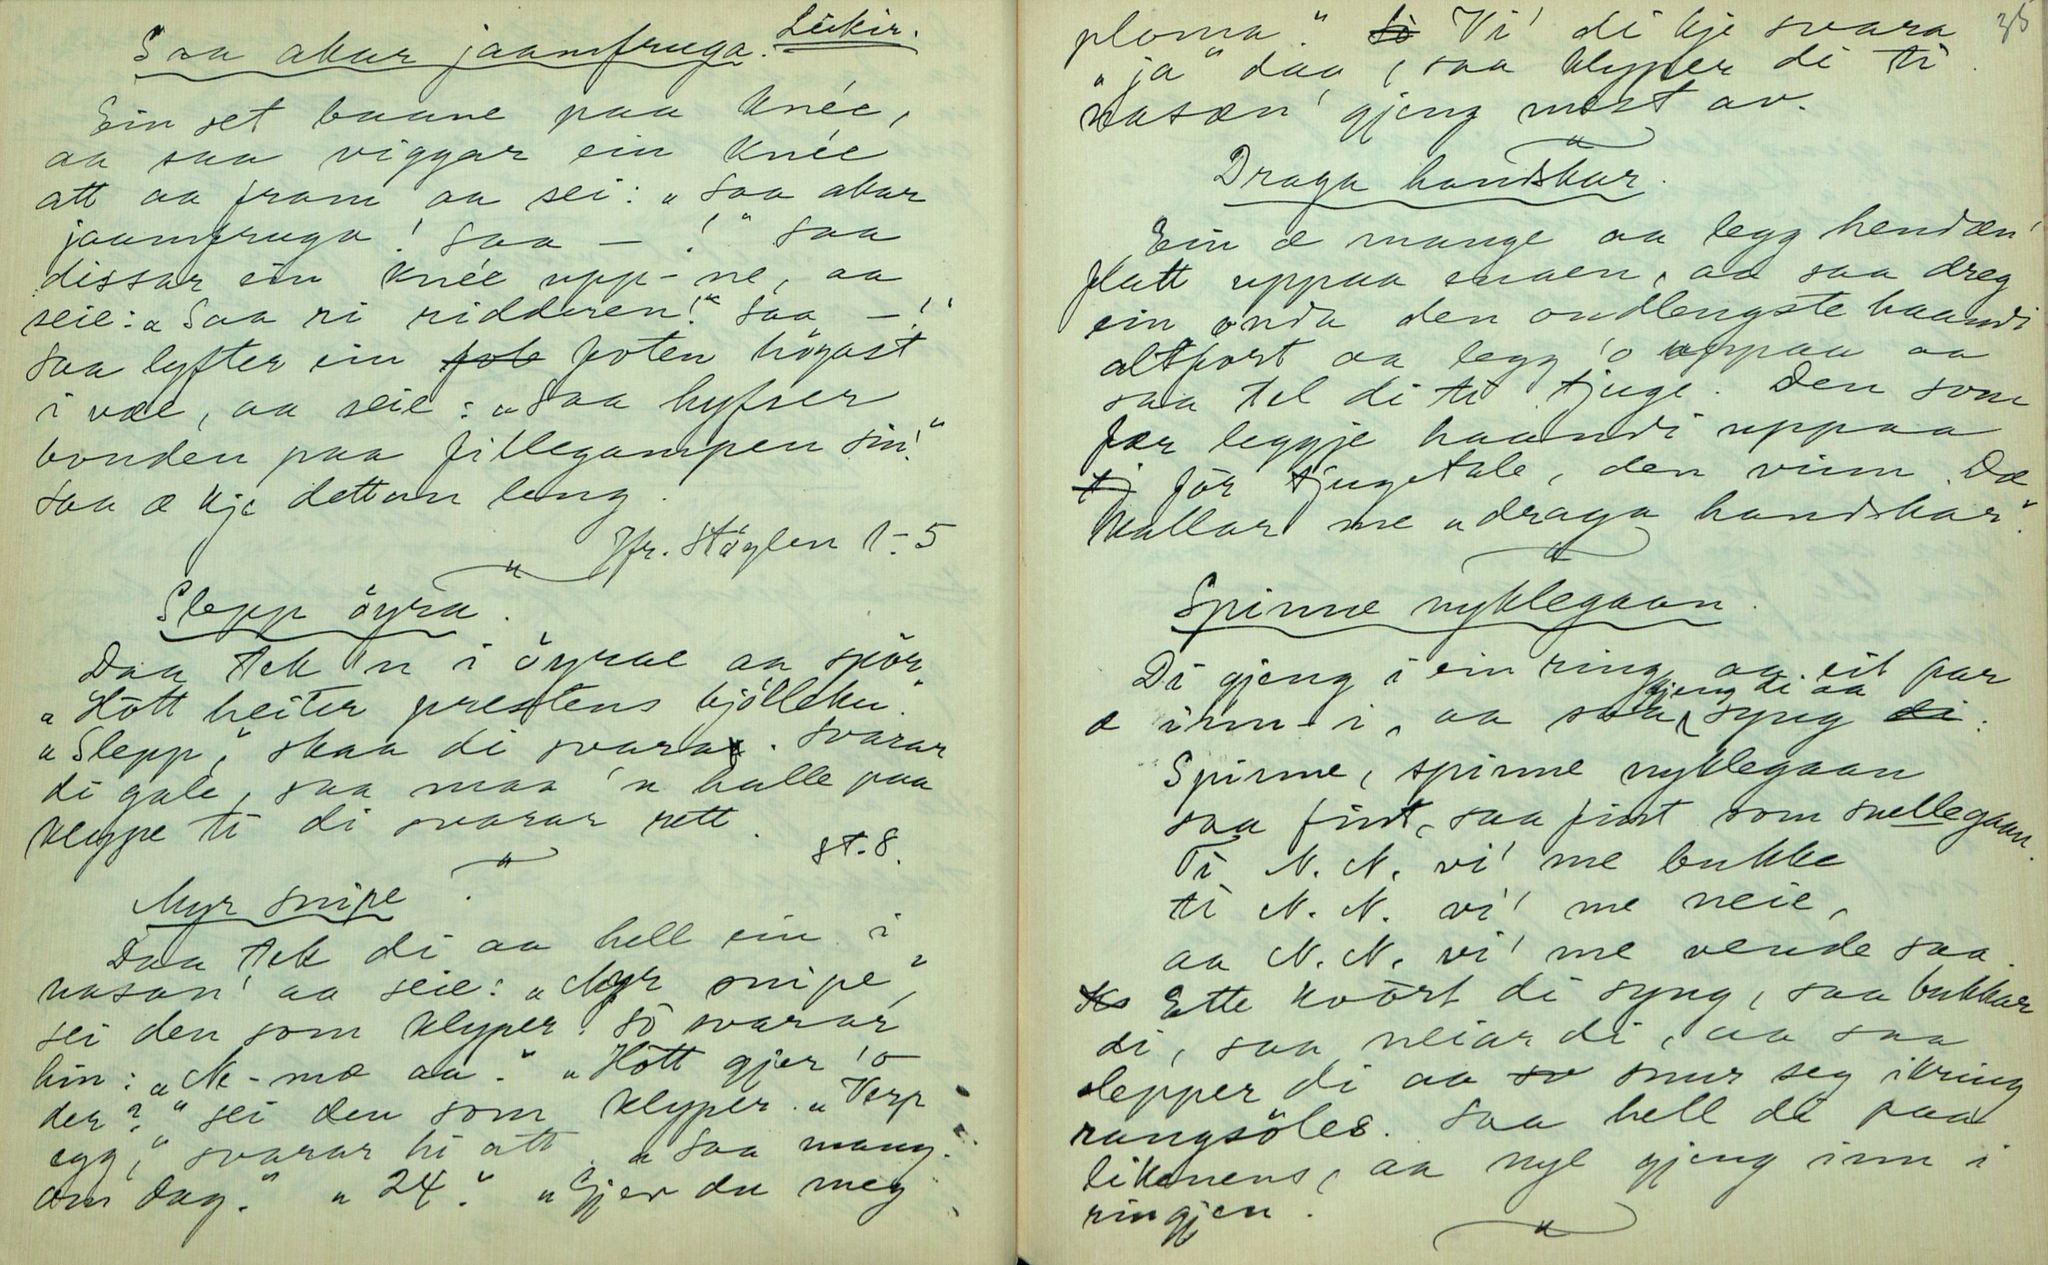 Saa akar jaamfruga. Leikir.
Ein set baane paa knée,
aa saa viggar ein knée
att aa fram aa sei: „Saa akar
jaamfruga! Saa — !" Saa
dissar ein knée upp-ne, aa
seie: „Saa ri ridderen!" Saa —!"
Saa lyfter ein foten högast
i væe, aa seie: „Saa hyfser
bonden paa fillegampen sin!"
Saa æ kje dettan leng.
Jfr. Stöylen 1-5
Slepp öyra.
Daa tek 'n i öyrae aa spör
„Hött heiter prestens bjölleku."
„Slepp," skaa di svara. Svarar
di gale, saa maa 'n halle paa
klype ti di svarar rett.
St. 8.
Myr snipe.
Daa tek di aa hell ein i
nasan' aa seie: „Myr snipe",
sei den som klyper. Sö svarar
hin: „Me-mæ aa." „Hött gjer 'o
der?" sei den som klyper. „Verp
egg," svarar hi att. „Saa mang
om dag." „24." „Gjev du meg
35
ploma." Vi' di kje svara
„ja" daa, saa klyper di ti
nasæn' gjeng mest av.
Draga handskar.
Ein æ mange aa legg hendæn'
flatt uppaa enaen, aa saa dreg
ein onda den ondlengste haandi
altfort aa legg 'o uppaa aa
saa tel di ti tjuge. Den som
fær leggje haandi uppaa
för tjugetale, den vinn. Dæ
kallar me „draga handskar".
Spinne nyklegaan.
Di gjeng i ein ring aa eit par
æ inn-i, aa saa gjeng di aa syng:
Spinne, spinne nyklegaan
saa fint, saa fint som snellegaan.
Ti N. N. vi' me bukke
ti N. N. vi' me neie,
aa N. N. vi' me vende saa.
Ette kvört di syng, saa bukkar
di, saa neiar di, aa saa
slepper di aa snur seg ikring
rangsöles. Saa hell di paa
likenens, aa nye gjeng inn i
ringjen.